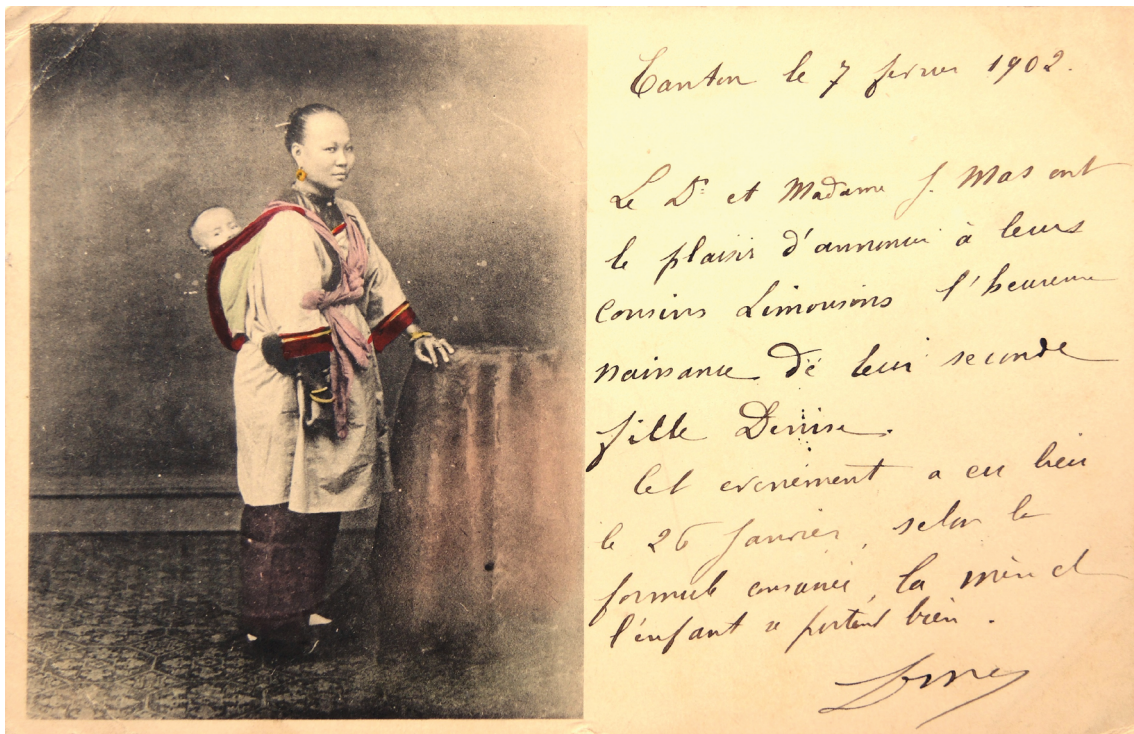 Canton le 7 fevrier 1902.
Le Dr et Madame J. Mas ont
le plaisir d'annoncer à leurs
cousins Limousins l'heureuse
naissance de leur seconde
fille Denise.
Cet evenement a eu lieu
le 26 Janvier, selon la
formule consacrée, la mère et
l'enfant se portent bien.